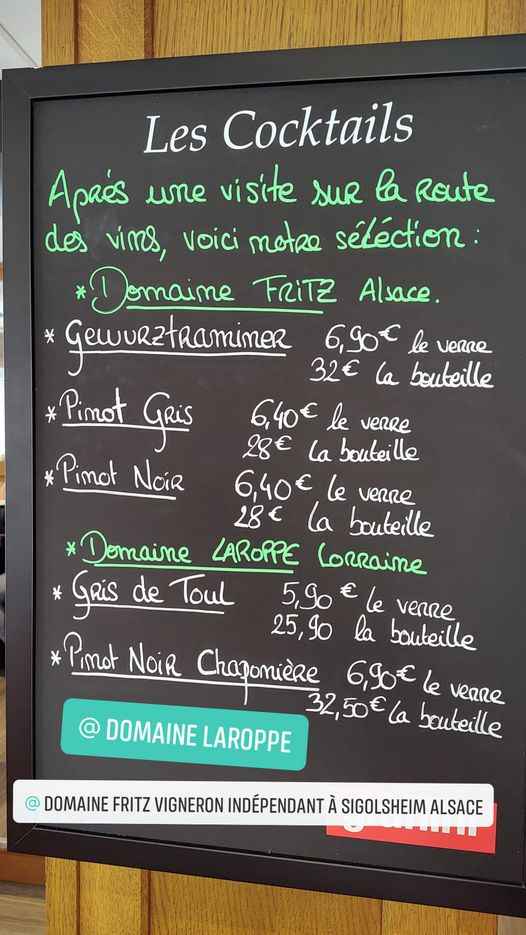 Les Cocktails
Après une visite sur la Route
des vins, voici notre séléction :
* Domaine FRITZ Alsace.
* Gewurztraminer 6,90€ le verre
32€ la bouteille
* Pinot Gris 6,40€ le verre
28€ la bouteille
* Pinot Noir 6,40€ le verre
28€ la bouteille
* Domaine LAROPPE Lorraine
* Gris de Toul 5,90€ le verre
25,90 la bouteille
* Pinot Noir Chaponière 6,90€ le verre
32,50€ la bouteille
@ DOMAINE LAROPPE
@ DOMAINE FRITZ VIGNERON INDÉPENDANT À SIGOLSHEIM ALSACE